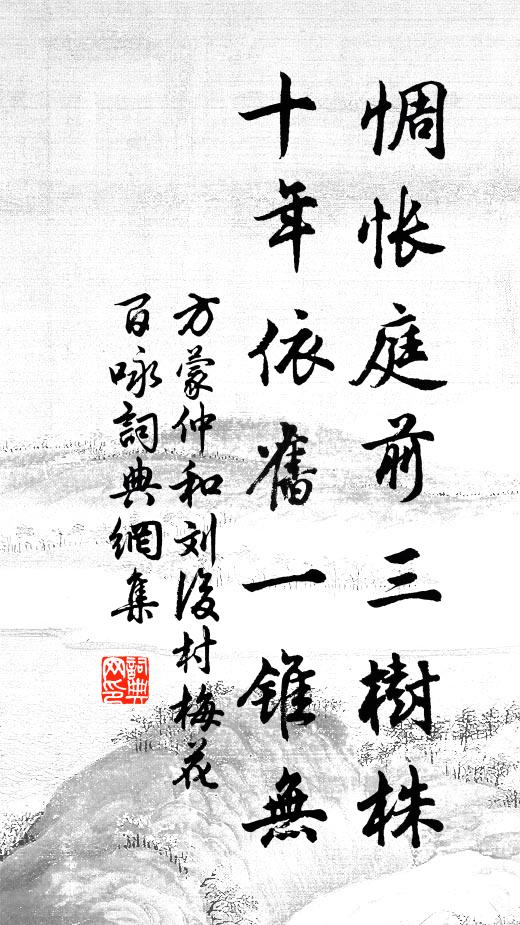 惆怅庭前三樹株
十年依舊一錐無
方蒙仲和刘後村梅花
百咏詞典網集
詞典网印